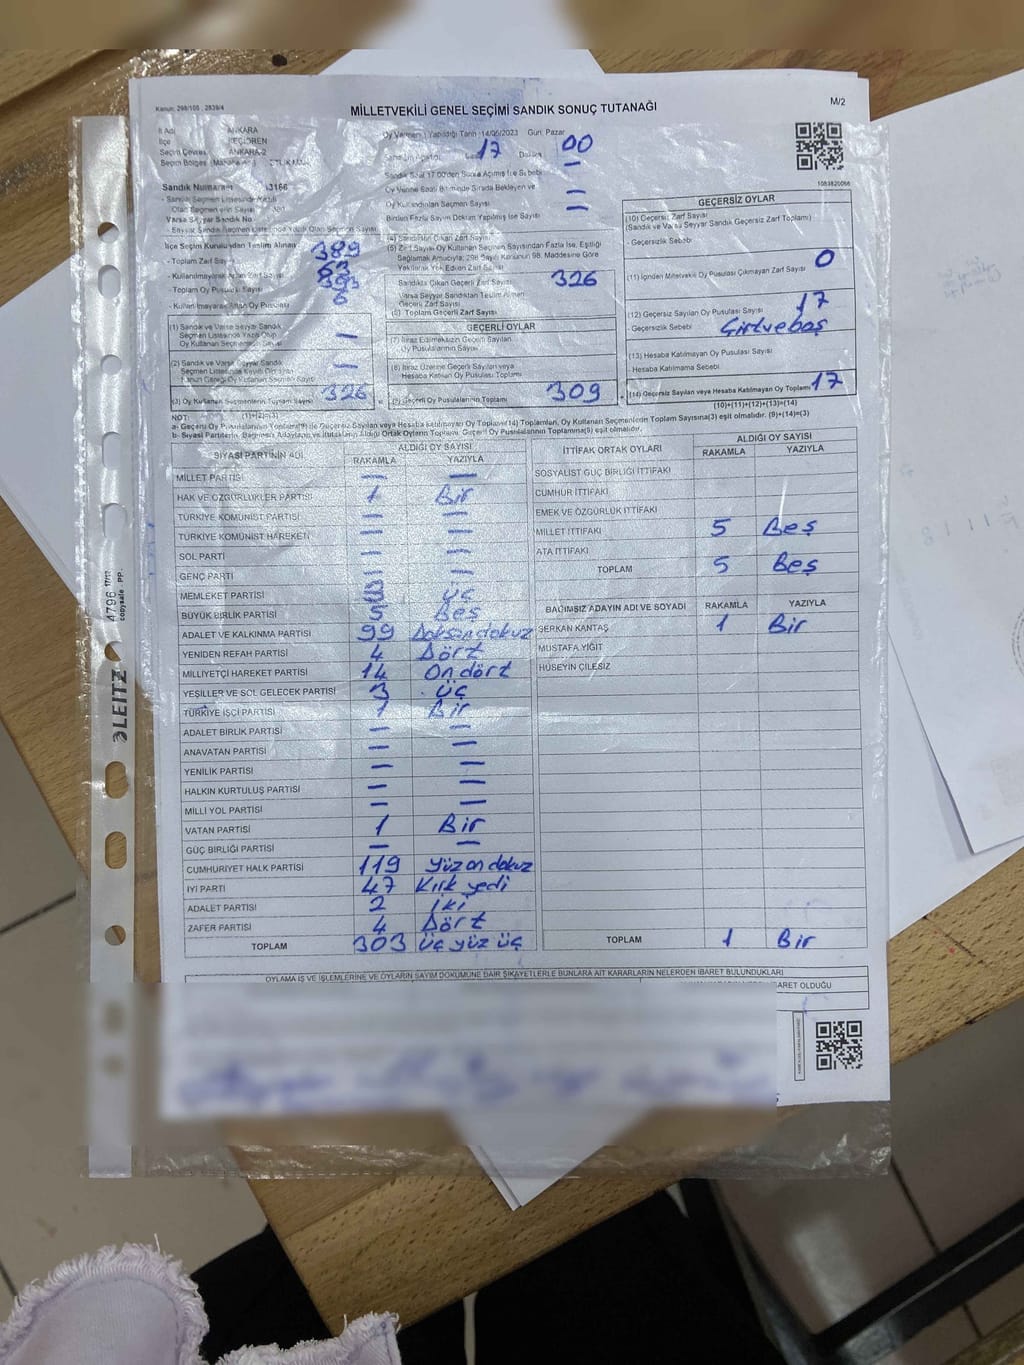 Kanun: 298/105 , 2839/4
MİLLETVEKİLİ GENEL SEÇİMİ SANDIK SONUÇ TUTANAĞI
M/2
İl Adı ANKARA
İlçe KEÇİÖREN
Seçim Çevresi ANKARA-2
Seçim Bölgesi
Oy Vermenin Yapıldığı Tarih :14/05/2023 Gün: Pazar
17 00
Sandık Saat 17:00'den Sonra Açılmış İse Sebebi
Oy Verme Saati Bitiminde Sırada Bekleyen ve
Oy Kullandırılan Seçmen Sayısı —
Birden Fazla Sayım Döküm Yapılmış İse Sayısı —
1083820066
Sandık Numarası
Varsa Seyyar Sandık No
İlçe Seçim Kurulundan Teslim Alınan
- Toplam Zarf Sayısı 389
- Toplam Oy Pusulası Sayısı
- Kullanılmayarak Artan Oy Pusulası 6
(1) Sandık ve Varsa Seyyar Sandık
Seçmen Listesinde Yazılı Olup
Oy Kullanan Seçmen Sayısı —
(2) Sandık ve Varsa Seyyar Sandık
Seçmen Listesinde Kayıtlı Olmayan
Kanun Gereği Oy Kullanan Seçmen Sayısı —
(3) Oy Kullanan Seçmenlerin Toplam Sayısı 326
(1)+(2)=(3)
(4) Sandıktan Çıkan Zarf Sayısı
(5) Zarf Sayısı Oy Kullanan Seçmen Sayısından Fazla İse, Eşitliği
Sağlamak Amacıyla; 298 Sayılı Kanunun 98. Maddesine Göre
Yakılarak Yok Edilen Zarf Sayısı
Sandıkta Çıkan Geçerli Zarf Sayısı 326
Varsa Seyyar Sandıktan Teslim Alınan
Geçerli Zarf Sayısı
(6) Toplam Geçerli Zarf Sayısı
GEÇERLİ OYLAR
(7) İtiraz Edilmeksizin Geçerli Sayılan
Oy Pusulalarının Sayısı
(8) İtiraz Üzerine Geçerli Sayılan veya
Hesaba Katılan Oy Pusulası Toplamı
(9) Geçerli Oy Pusulalarının Toplamı 309
GEÇERSİZ OYLAR
(10) Geçersiz Zarf Sayısı
(Sandık ve Varsa Seyyar Sandık Geçersiz Zarf Toplamı)
- Geçersizlik Sebebi
(11) İçinden Milletvekili Oy Pusulası Çıkmayan Zarf Sayısı 0
(12) Geçersiz Sayılan Oy Pusulası Sayısı 17
Geçersizlik Sebebi
(13) Hesaba Katılmayan Oy Pusulası Sayısı
Hesaba Katılmama Sebebi
(14) Geçersiz Sayılan veya Hesaba Katılmayan Oy Toplamı 17
(10)+(11)+(12)+(13)=(14)
NOT:
a- Geçerli Oy Pusulalarının Toplamı(9) ile Geçersiz Sayılan veya Hesaba Katılmayan Oy Toplamı(14) Toplamları, Oy Kullanan Seçmenlerin Toplam Sayısına(3) eşit olmalıdır. (9)+(14)=(3)
b- Siyasi Partilerin, Bağımsız Adayların ve İttifakların Aldığı Ortak Oyların Toplamı, Geçerli Oy Pusulalarının Toplamına(9) eşit olmalıdır.
SİYASİ PARTİNİN ADI ALDIĞI OY SAYISI
RAKAMLA YAZIYLA
MİLLET PARTİSİ — —
HAK VE ÖZGÜRLÜKLER PARTİSİ 1 Bir
TÜRKİYE KOMÜNİST PARTİSİ — —
TÜRKİYE KOMÜNİST HAREKETİ — —
SOL PARTİ — —
GENÇ PARTİ — —
MEMLEKET PARTİSİ 3 üç
BÜYÜK BİRLİK PARTİSİ 5 Beş
ADALET VE KALKINMA PARTİSİ 99 Doksan dokuz
YENİDEN REFAH PARTİSİ 4 Dört
MİLLİYETÇİ HAREKET PARTİSİ 14 On dört
YEŞİLLER VE SOL GELECEK PARTİSİ 3 üç
TÜRKİYE İŞÇİ PARTİSİ 1 Bir
ADALET BİRLİK PARTİSİ — —
ANAVATAN PARTİSİ — —
YENİLİK PARTİSİ — —
HALKIN KURTULUŞ PARTİSİ — —
MİLLİ YOL PARTİSİ — —
VATAN PARTİSİ 1 Bir
GÜÇ BİRLİĞİ PARTİSİ — —
CUMHURİYET HALK PARTİSİ 119 Yüz on dokuz
İYİ PARTİ 47 Kırk yedi
ADALET PARTİSİ 2 İki
ZAFER PARTİSİ 4 Dört
TOPLAM 303 üç yüz üç
İTTİFAK ORTAK OYLARI ALDIĞI OY SAYISI
RAKAMLA YAZIYLA
SOSYALİST GÜÇ BİRLİĞİ İTTİFAKI
CUMHUR İTTİFAKI
EMEK VE ÖZGÜRLÜK İTTİFAKI
MİLLET İTTİFAKI 5 Beş
ATA İTTİFAKI
TOPLAM 5 Beş
BAĞIMSIZ ADAYIN ADI VE SOYADI RAKAMLA YAZIYLA
SERKAN KANTAŞ 1 Bir
MUSTAFA YİĞİT
HÜSEYİN ÇİLESİZ
TOPLAM 1 Bir
OYLAMA İŞ VE İŞLEMLERİNE VE OYLARIN SAYIM DÖKÜMÜNE DAİR ŞİKAYETLERLE BUNLARA AİT KARARLARIN NELERDEN İBARET BULUNDUKLARI
İBARET OLDUĞU
LEITZ
4796
copysafe - PP.